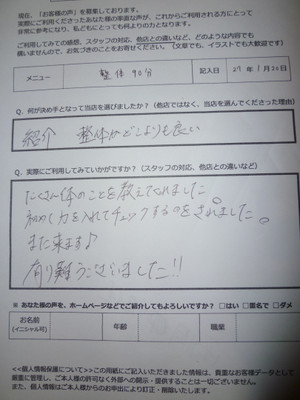 現在、「お客様の声」を募集しております。
実際にご利用くださったあなた様の率直な声が、これからご利用される方にとって
非常に参考になり、私どもにとっても何よりの力となります。
ご利用してみての感想、スタッフの対応、他店との違いなど、どのような内容でも
構いませんので、お気づきのことをお寄せください。「文章でも、イラストでも大歓迎です」
メニュー 整体 90分 記入日 27年1月20日
Q. 何が決め手となって当店を選びましたか?(他店ではなく、当店を選んでくださった理由)
紹介 整体がどこよりも良い
Q. 実際にご利用してみていかがですか?(スタッフの対応、他店との違いなど)
たくさん体のことを教えてくれました。
初めて力を入れてチェックするのをされました。
また来ます♪
有り難うございました!!
※ あなた様の声を、ホームページなどでご紹介してもよろしいですか? □はい □匿名で □ダメ
お名前
(イニシャル可)
年齢
職業
<<個人情報保護について>>この用紙にご記入いただきました情報は、貴重なお客様データとして
厳重に管理し、ご本人様の許可なく外部への開示・提供することは一切ございません。
また、個人情報はご本人様からのお申出により訂正・削除いたします。